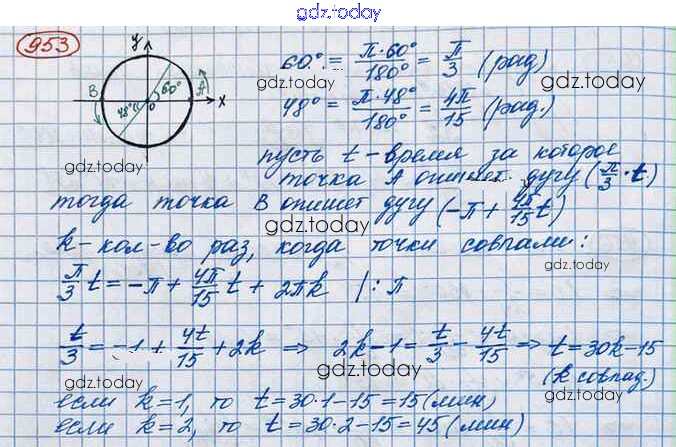 gdz.today
gdz.today
953
y
B
A
60°
48°
O
x
60° = π·60°/180° = π/3 (рад)
gdz.today
48° = π·48°/180° = 4π/15 (рад.)
gdz.today
gdz.today
пусть t - время за которое
точка A опишет дугу (π/3 · t)
gdz.today
тогда точка B опишет дугу (-π + 4π/15 t)
gdz.today
k - кол-во раз, когда точки совпали:
gdz.today
π/3 t = -π + 4π/15 t + 2πk | : π
gdz.today
t/3 = -1 + 4t/15 + 2k ⇒ 2k-1 = t/3 - 4t/15 ⇒ t = 30k-15
gdz.today
(k совпад.)
gdz.today
если k=1, то t = 30·1-15 = 15 (мин)
если k=2, то t = 30·2-15 = 45 (мин)
gdz.today
gdz.today